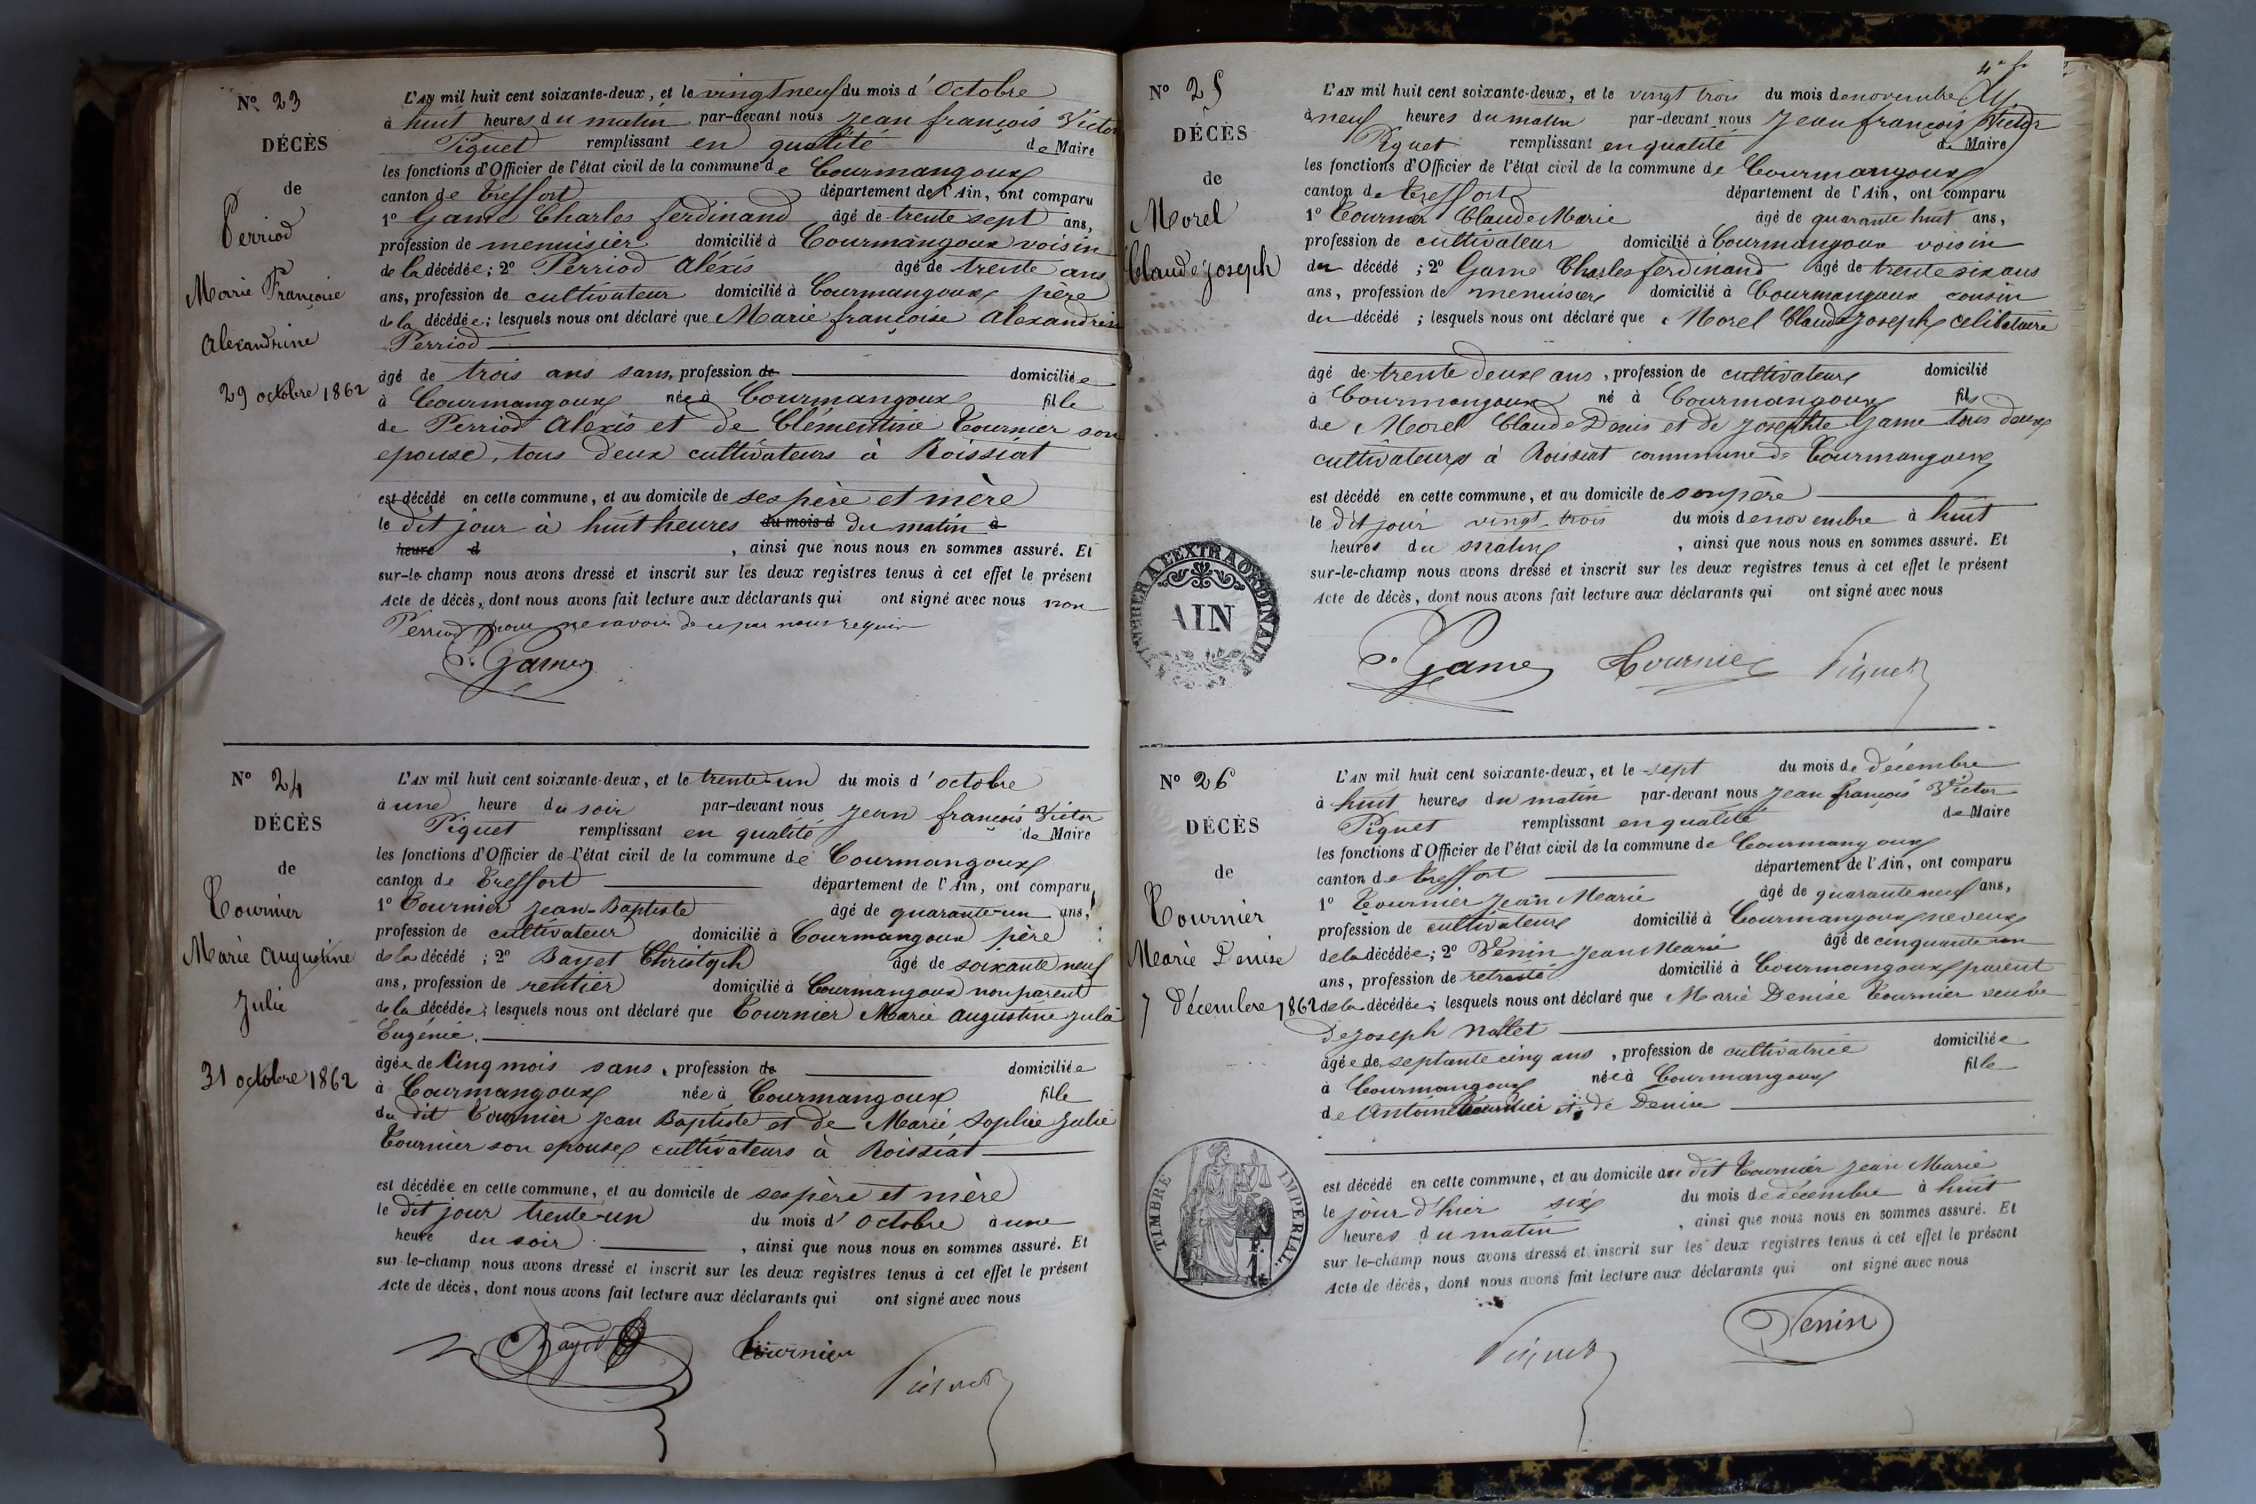 N° 23
DÉCÈS
de
Perriod
Marie Françoise
Alexandrine
29 octobre 1862
L'AN mil huit cent soixante-deux, et le vingt neuf du mois d'Octobre
à huit heures du matin par-devant nous Jean françois Victor
Piquet remplissant en qualité de Maire
les fonctions d'Officier de l'état civil de la commune de Courmangoux
canton de Treffort département de l'Ain, ont comparu
1° Game Charles ferdinand âgé de trente sept ans,
profession de menuisier domicilié à Courmangoux voisin
de la décédée; 2° Perriod Aléxis âgé de trente ans
ans, profession de cultivateur domicilié à Courmangoux père
de la décédée; lesquels nous ont déclaré que Marie françoise Alexandrine
Perriod
âgé de trois ans sans, profession de domiciliée
à Courmangoux née à Courmangoux fille
de Perriod Alexis et de Clémentine Tournier son
epouse, tous deux cultivateurs à Roissiat
est décédé en cette commune, et au domicile de ses père et mère
le dit jour à huit heures du mois d du matin à
heure d , ainsi que nous nous en sommes assuré. Et
sur-le-champ nous avons dressé et inscrit sur les deux registres tenus à cet effet le présent
Acte de décès, dont nous avons fait lecture aux déclarants qui ont signé avec nous non
Perriod pour ne savoir de ce par nous requis
Game
N° 24
DÉCÈS
de
Tournier
Marie Augustine
Julie
31 octobre 1862
L'AN mil huit cent soixante-deux, et le trente-un du mois d'octobre
à une heure du soir par-devant nous Jean françois Victor
Piquet remplissant en qualité de Maire
les fonctions d'Officier de l'état civil de la commune de Courmangoux
canton de Treffort département de l'Ain, ont comparu
1° Tournier Jean-Baptiste âgé de quarante-un ans,
profession de cultivateur domicilié à Courmangoux père
de la décédé; 2° Bayet Christoph âgé de soixante neuf
ans, profession de rentier domicilié à Courmangoux non parent
de la décédée; lesquels nous ont déclaré que Tournier Marie Augustine Julie
Eugénie.
âgée de Cinq mois sans, profession de domiciliée
à Courmangoux née à Courmangoux fille
du dit Tournier Jean Baptiste et de Marie Sophie Julie
Tournier son epouse cultivateurs à Roissiat
est décédée en cette commune, et au domicile de ses père et mère
le dit jour trente-un du mois d'Octobre à une
heure du soir , ainsi que nous nous en sommes assuré. Et
sur-le-champ nous avons dressé et inscrit sur les deux registres tenus à cet effet le présent
Acte de décès, dont nous avons fait lecture aux déclarants qui ont signé avec nous
Bayet Tournier Piquet
N° 25
DÉCÈS
de
Morel
Claude Joseph
L'AN mil huit cent soixante-deux, et le vingt trois du mois de novembre
à neuf heures du matin par-devant nous Jean françois Victor
Piquet remplissant en qualité de Maire
les fonctions d'Officier de l'état civil de la commune de Courmangoux
canton de Treffort département de l'Ain, ont comparu
1° Tournier Claude Marie âgé de quarante huit ans,
profession de cultivateur domicilié à Courmangoux voisin
du décédé; 2° Game Charles ferdinand âgé de trente six ans
ans, profession de menuisier domicilié à Courmangoux cousin
du décédé; lesquels nous ont déclaré que Morel Claude Joseph celibataire
âgé de trente deux ans, profession de cultivateur domicilié
à Courmangoux né à Courmangoux fils
de Morel Claude Denis et de Josephte Game tous deux
cultivateurs à Roissiat commune de Courmangoux
est décédé en cette commune, et au domicile de son père
le dit jour vingt-trois du mois de novembre à huit
heures du matin , ainsi que nous nous en sommes assuré. Et
sur-le-champ nous avons dressé et inscrit sur les deux registres tenus à cet effet le présent
Acte de décès, dont nous avons fait lecture aux déclarants qui ont signé avec nous
TIMBRER A L'EXTRAORDINAIRE
AIN
Game Tournier Piquet
N° 26
DÉCÈS
de
Tournier
Marie Denise
7 Décembre 1862
L'AN mil huit cent soixante-deux, et le sept du mois de décembre
à huit heures du matin par-devant nous Jean françois Victor
Piquet remplissant en qualité de Maire
les fonctions d'Officier de l'état civil de la commune de Courmangoux
canton de Treffort département de l'Ain, ont comparu
1° Tournier Jean Marie âgé de quarante neuf ans,
profession de cultivateur domicilié à Courmangoux neveux
de la décédée; 2° Venin Jean Marie âgé de cinquante un
ans, profession de retraité domicilié à Courmangoux parent
de la décédée; lesquels nous ont déclaré que Marie Denise Tournier veuve
de Joseph Nallet
âgée de septante cinq ans, profession de cultivatrice domiciliée
à Courmangoux née à Courmangoux fille
de Antoine Tournier et de Denise
est décédé en cette commune, et au domicile du dit Tournier Jean Marie
le jour d'hier six du mois de décembre à huit
heures du matin , ainsi que nous nous en sommes assuré. Et
sur le-champ nous avons dressé et inscrit sur les deux registres tenus à cet effet le présent
Acte de décès, dont nous avons fait lecture aux déclarants qui ont signé avec nous
TIMBRE IMPERIAL
Piquet Venin